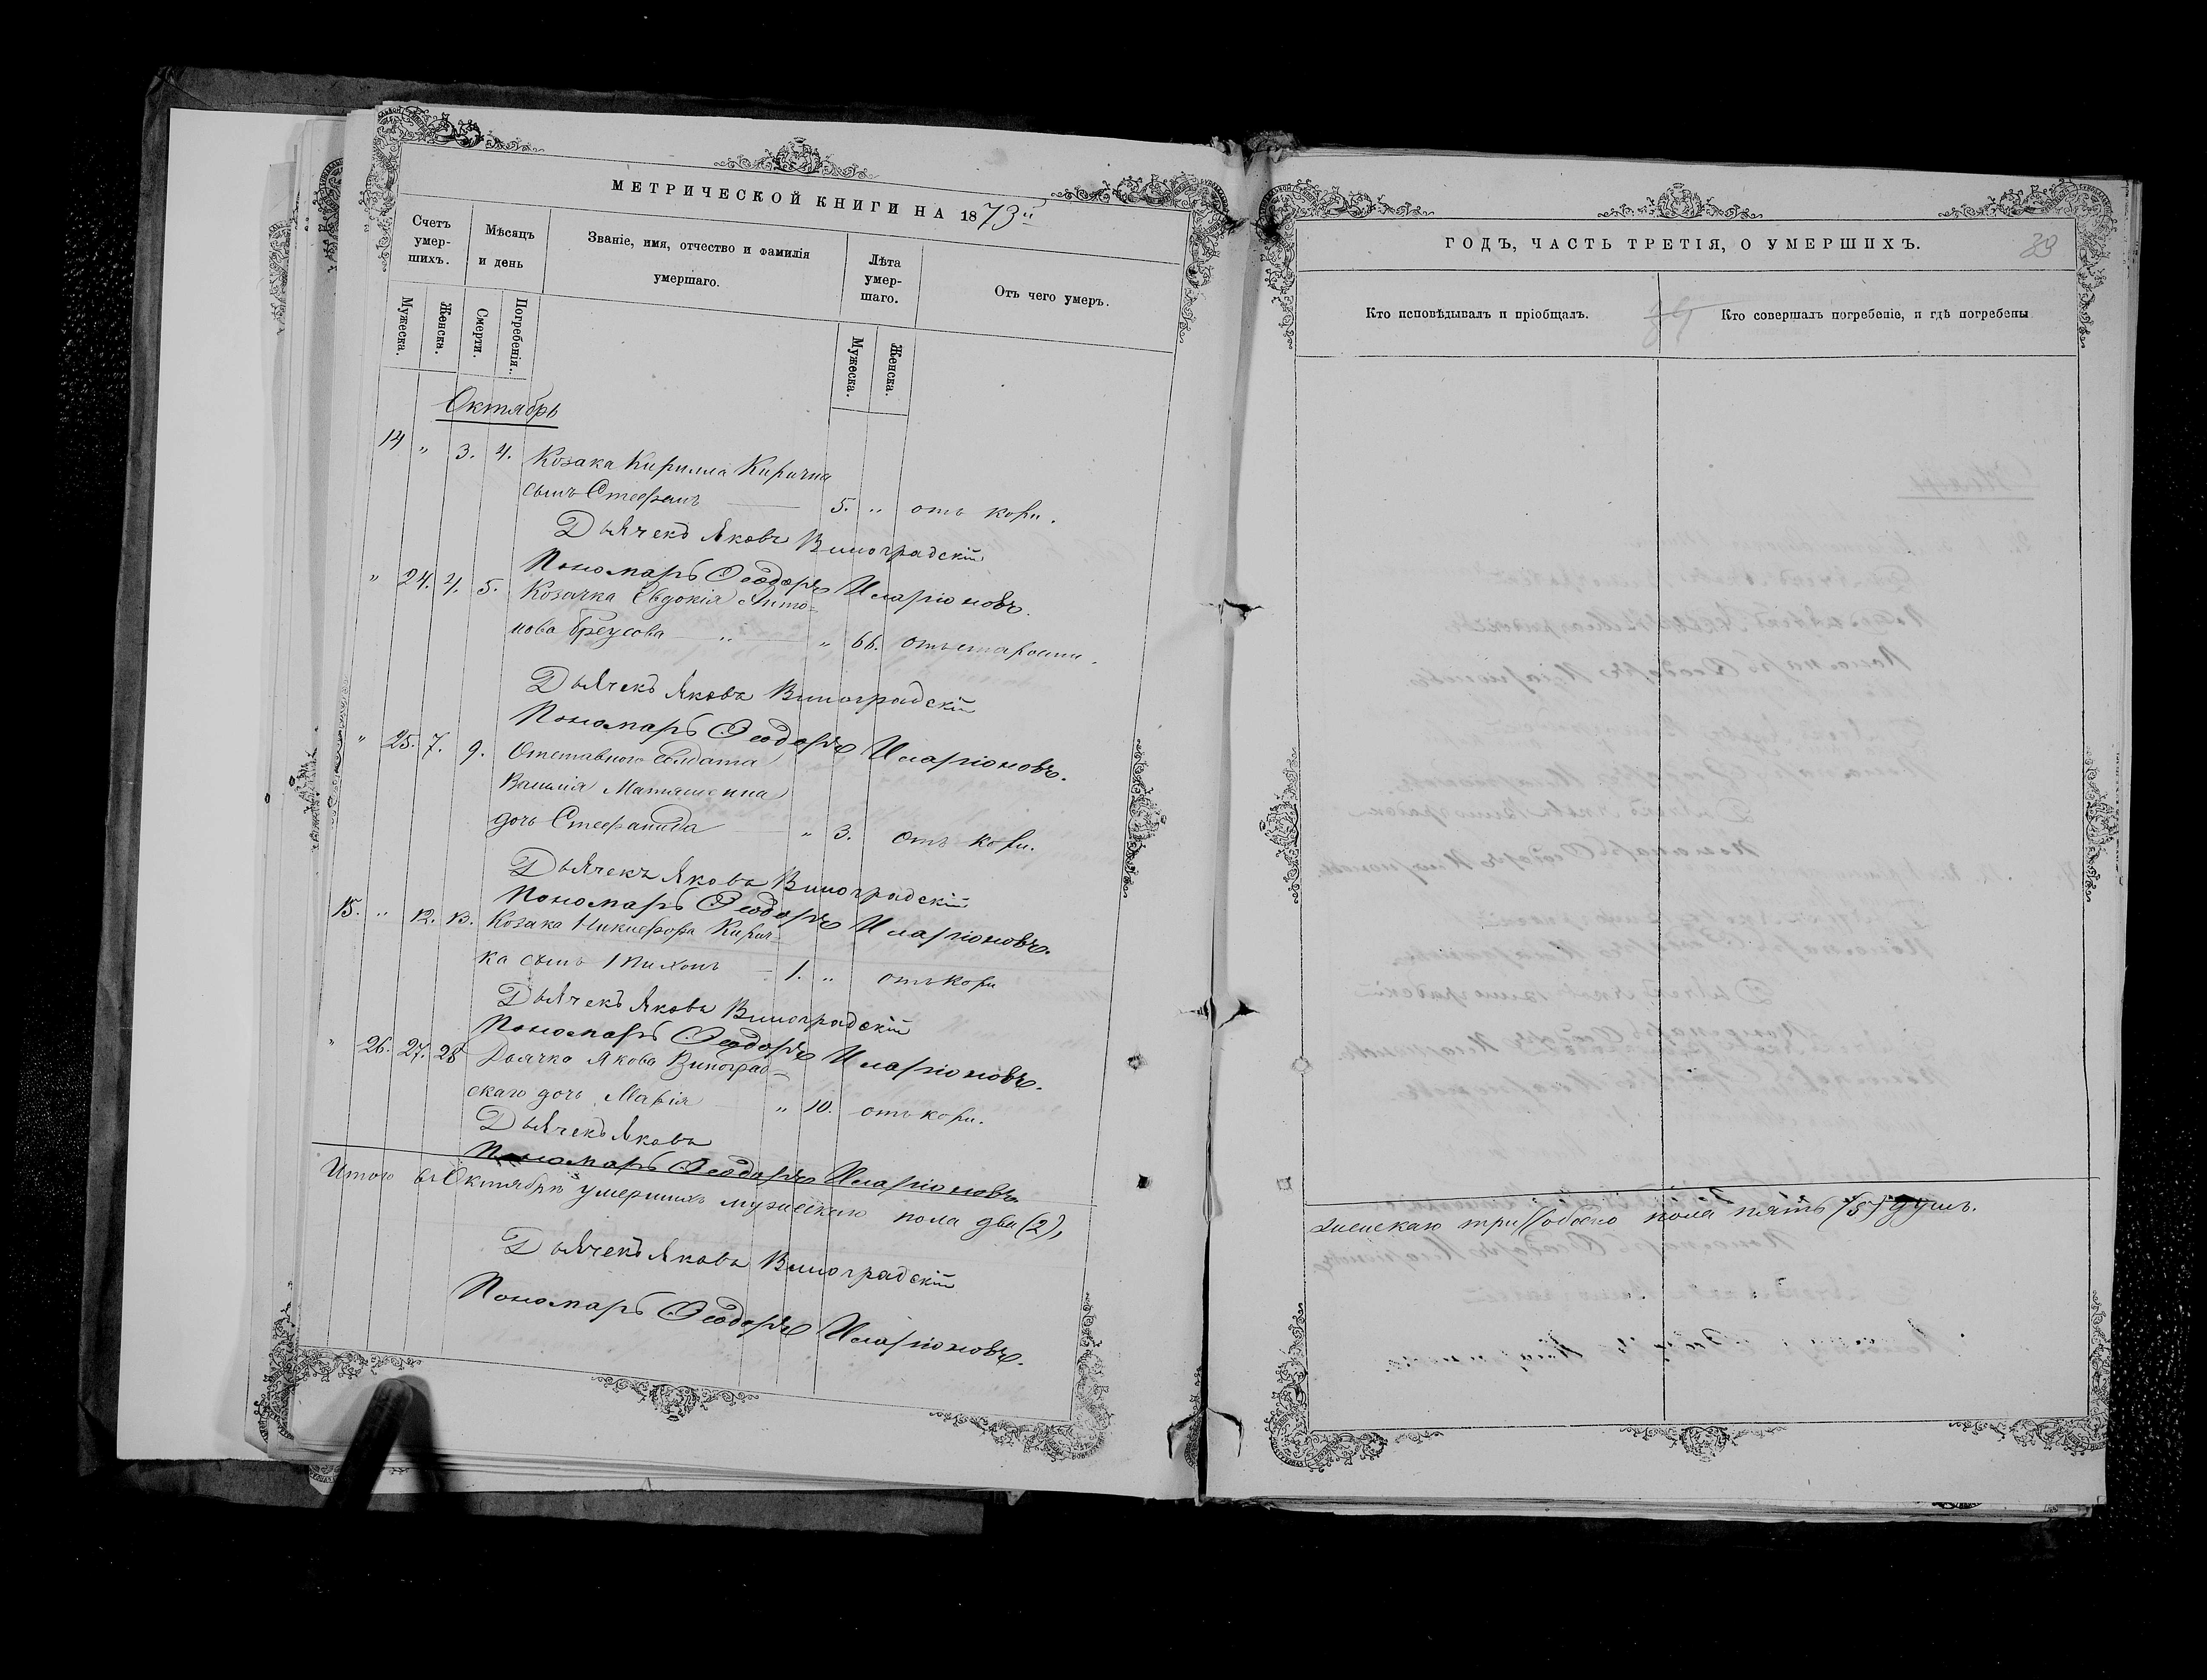 МЕТРИЧЕСКОЙ КНИГИ НА 1873й
Счетъ умер-шихъ.
Мѣсяцъ и день
Званіе, имя, отчество и фамилія умершаго.
Лѣта умер-шаго.
Отъ чего умеръ.
Мужеска.
Женска.
Смерти.
Погребенія.
Мужеска.
Женска.
Октябрь
14 " 3. 4. Козака Кирилла Киричка
сынъ Стефанъ 5. " отъ кори.
Дьячекъ Яковъ Виноградскій
Пономарь Ѳеодоръ Иларіоновъ.
" 24. 4. 5. Козачка Евдокія Анто-
нова Бреусова " " 66. отъ старости.
Дьячекъ Яковъ Виноградскій
Пономарь Ѳеодоръ Иларіоновъ.
" 25. 7. 9. Отставного Солдата
Василія Матяшенка
дочь Стефанида " 3. отъ кори.
Дьячекъ Яковъ Виноградскій
Пономарь Ѳеодоръ Иларіоновъ.
15. " 12. 13. Козака Никифора Кирич-
ка сынъ Тихонъ 1. " отъ кори
Дьячекъ Яковъ Виноградскій
Пономарь Ѳеодоръ Иларіоновъ.
" 26. 27. 28 Дьячка Якова Виноград-
скаго дочь Марія " 10. отъ кори.
Дьячекъ Яковъ
Пономарь Ѳеодоръ Иларіоновъ
Итого въ Октябрѣ умершихъ мужескаго пола два (2),
Дьячекъ Яковъ Виноградскій
Пономарь Ѳеодоръ Иларіоновъ.
ГОДЪ, ЧАСТЬ ТРЕТІЯ, О УМЕРШИХЪ.
39
Кто исповѣдывалъ и пріобщалъ.
Кто совершалъ погребеніе, и гдѣ погребены
женскаго три обоего пола пять (5) душъ.